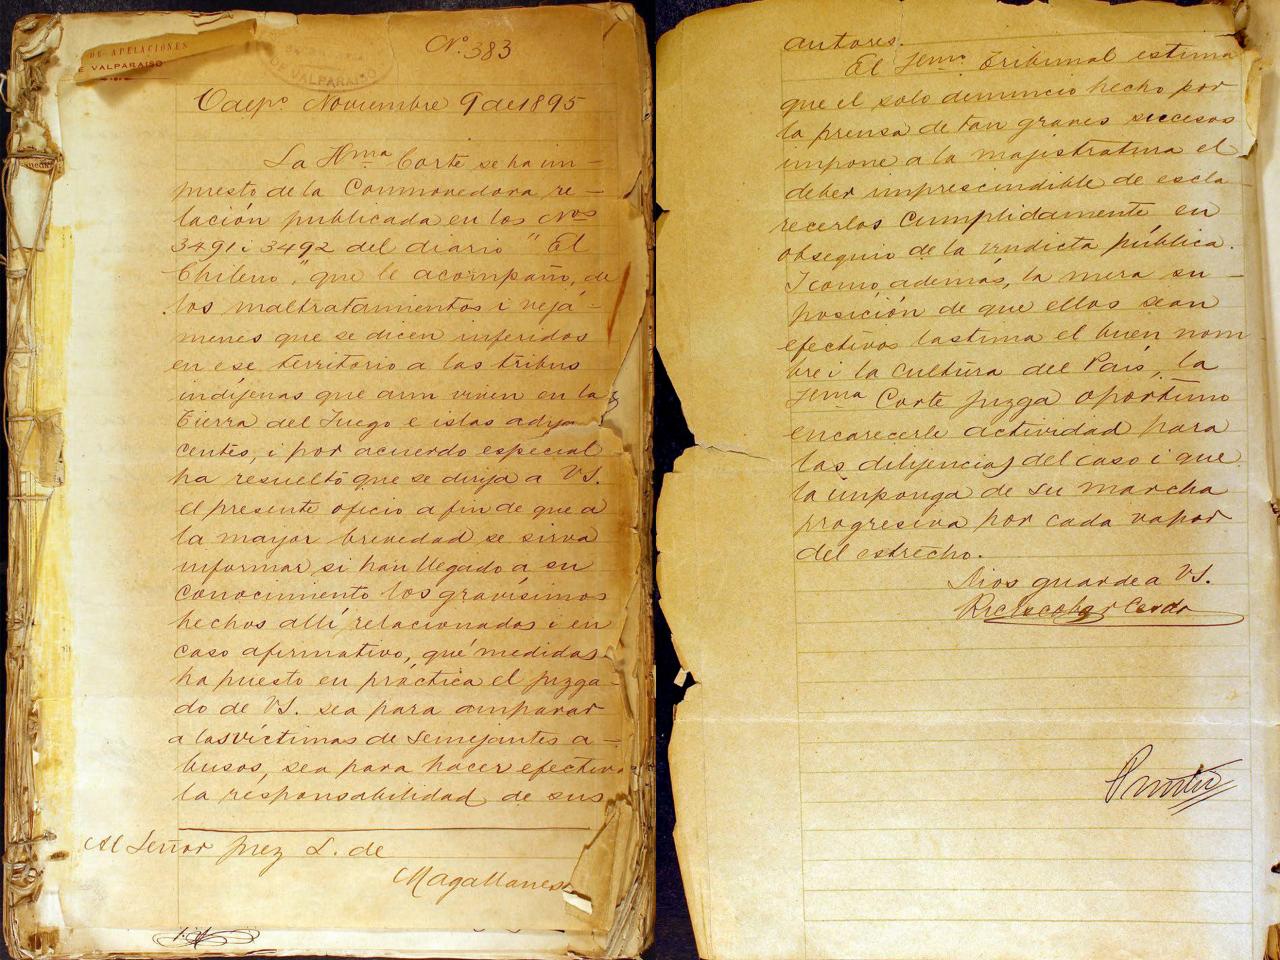 DE APELACIONES
E VALPARAISO
DE VALPARAISO
No. 383
Valpo. Noviembre 9 de 1895
La Hma Corte se ha im-
puesto de la Conmovedora re-
lación publicada en los Nos
3491 i 3492 del diario "El
Chileno", que le acompaño, de
los maltratamientos i vejá-
menes que se dicen inferidos
en ese territorio a las tribus
indíjenas que aun viven en la
Tierra del Fuego e islas adya
centes, i por acuerdo especial
ha resuelto que se dirija a VS.
el presente oficio a fin de que a
la mayor brevedad se sirva
informar si han llegado a su
conocimiento los gravísimos
hechos allí relacionados i en
caso afirmativo, qué medidas
ha puesto en práctica el juzga-
do de VS. sea para amparar
a las víctimas de semejantes a-
busos, sea para hacer efectiva
la responsabilidad de sus
Al Señor Juez L. de
Magallanes
autores.
El Iltmo Tribunal estima
que el solo denuncio hecho por
la prensa de tan graves sucesos
impone a la majistratura el
deber imprescindible de escla
recerlos cumplidamente en
obsequio de la vindicta pública.
I como, además, la mera su-
posición de que ellos sean
efectivos lastima el buen nom
bre i la cultura del País, la
Iltma Corte juzga oportuno
encarecerle actividad para
las dilijencias del caso i que
la imponga de su marcha
progresiva por cada vapor
del estrecho.
Dios guarde a VS.